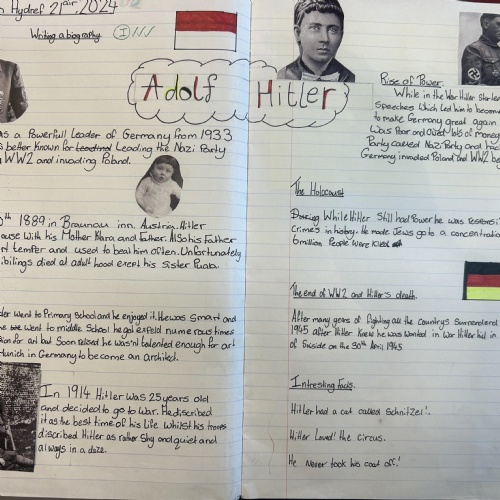 Hydref 21ain. 2024
Writing a biography
Adolf Hitler
as a Powerfull Leader of Germany from 1933
better known for Leading the Nazi Party
WW2 and invading Poland.
1889 in Braunau inn, Austria. Hitler
ouse with his Mother Klara and Father. Also his Father
temper and used to beat him often. Unfortunately
iblings died at adult hood exept his Sister Paula.
went to Primary School and he enjoyed it. He was Smart and
he went to middle School he got exfeld numerous times
sion for art but Soon realised he was'nt talented enough for art
Munich in Germany to become an architect.
In 1914 Hitler was 25 years old
and decided to go to war. He discribed
it as the best time of his life whilst his troops
discribed Hitler as rather Shy and quiet and
always in a daze.
Rise of Power
While in the War Hitler Started
Speeches which Led him to become
to make Germany great again
was Poor and Owed lots of money
Party called Nazi Party and had
Germany invaded Poland and WW2 be
The Holocaust
During While Hitler Still had Power he was responsi
Crimes in history. He made Jews go to a concentration
6 million People were Killed
The end of WW2 and Hitler's death.
After many years of fighting all the Countrys Surrenderd
1945 after Hitler Knew he was wanted in War Hitler hid in
of Suiside on the 30th April 1945
Intresting facts.
Hitler had a cat called Schnitzel!.
Hitler Loved! the Circus.
He Never took his coat off!